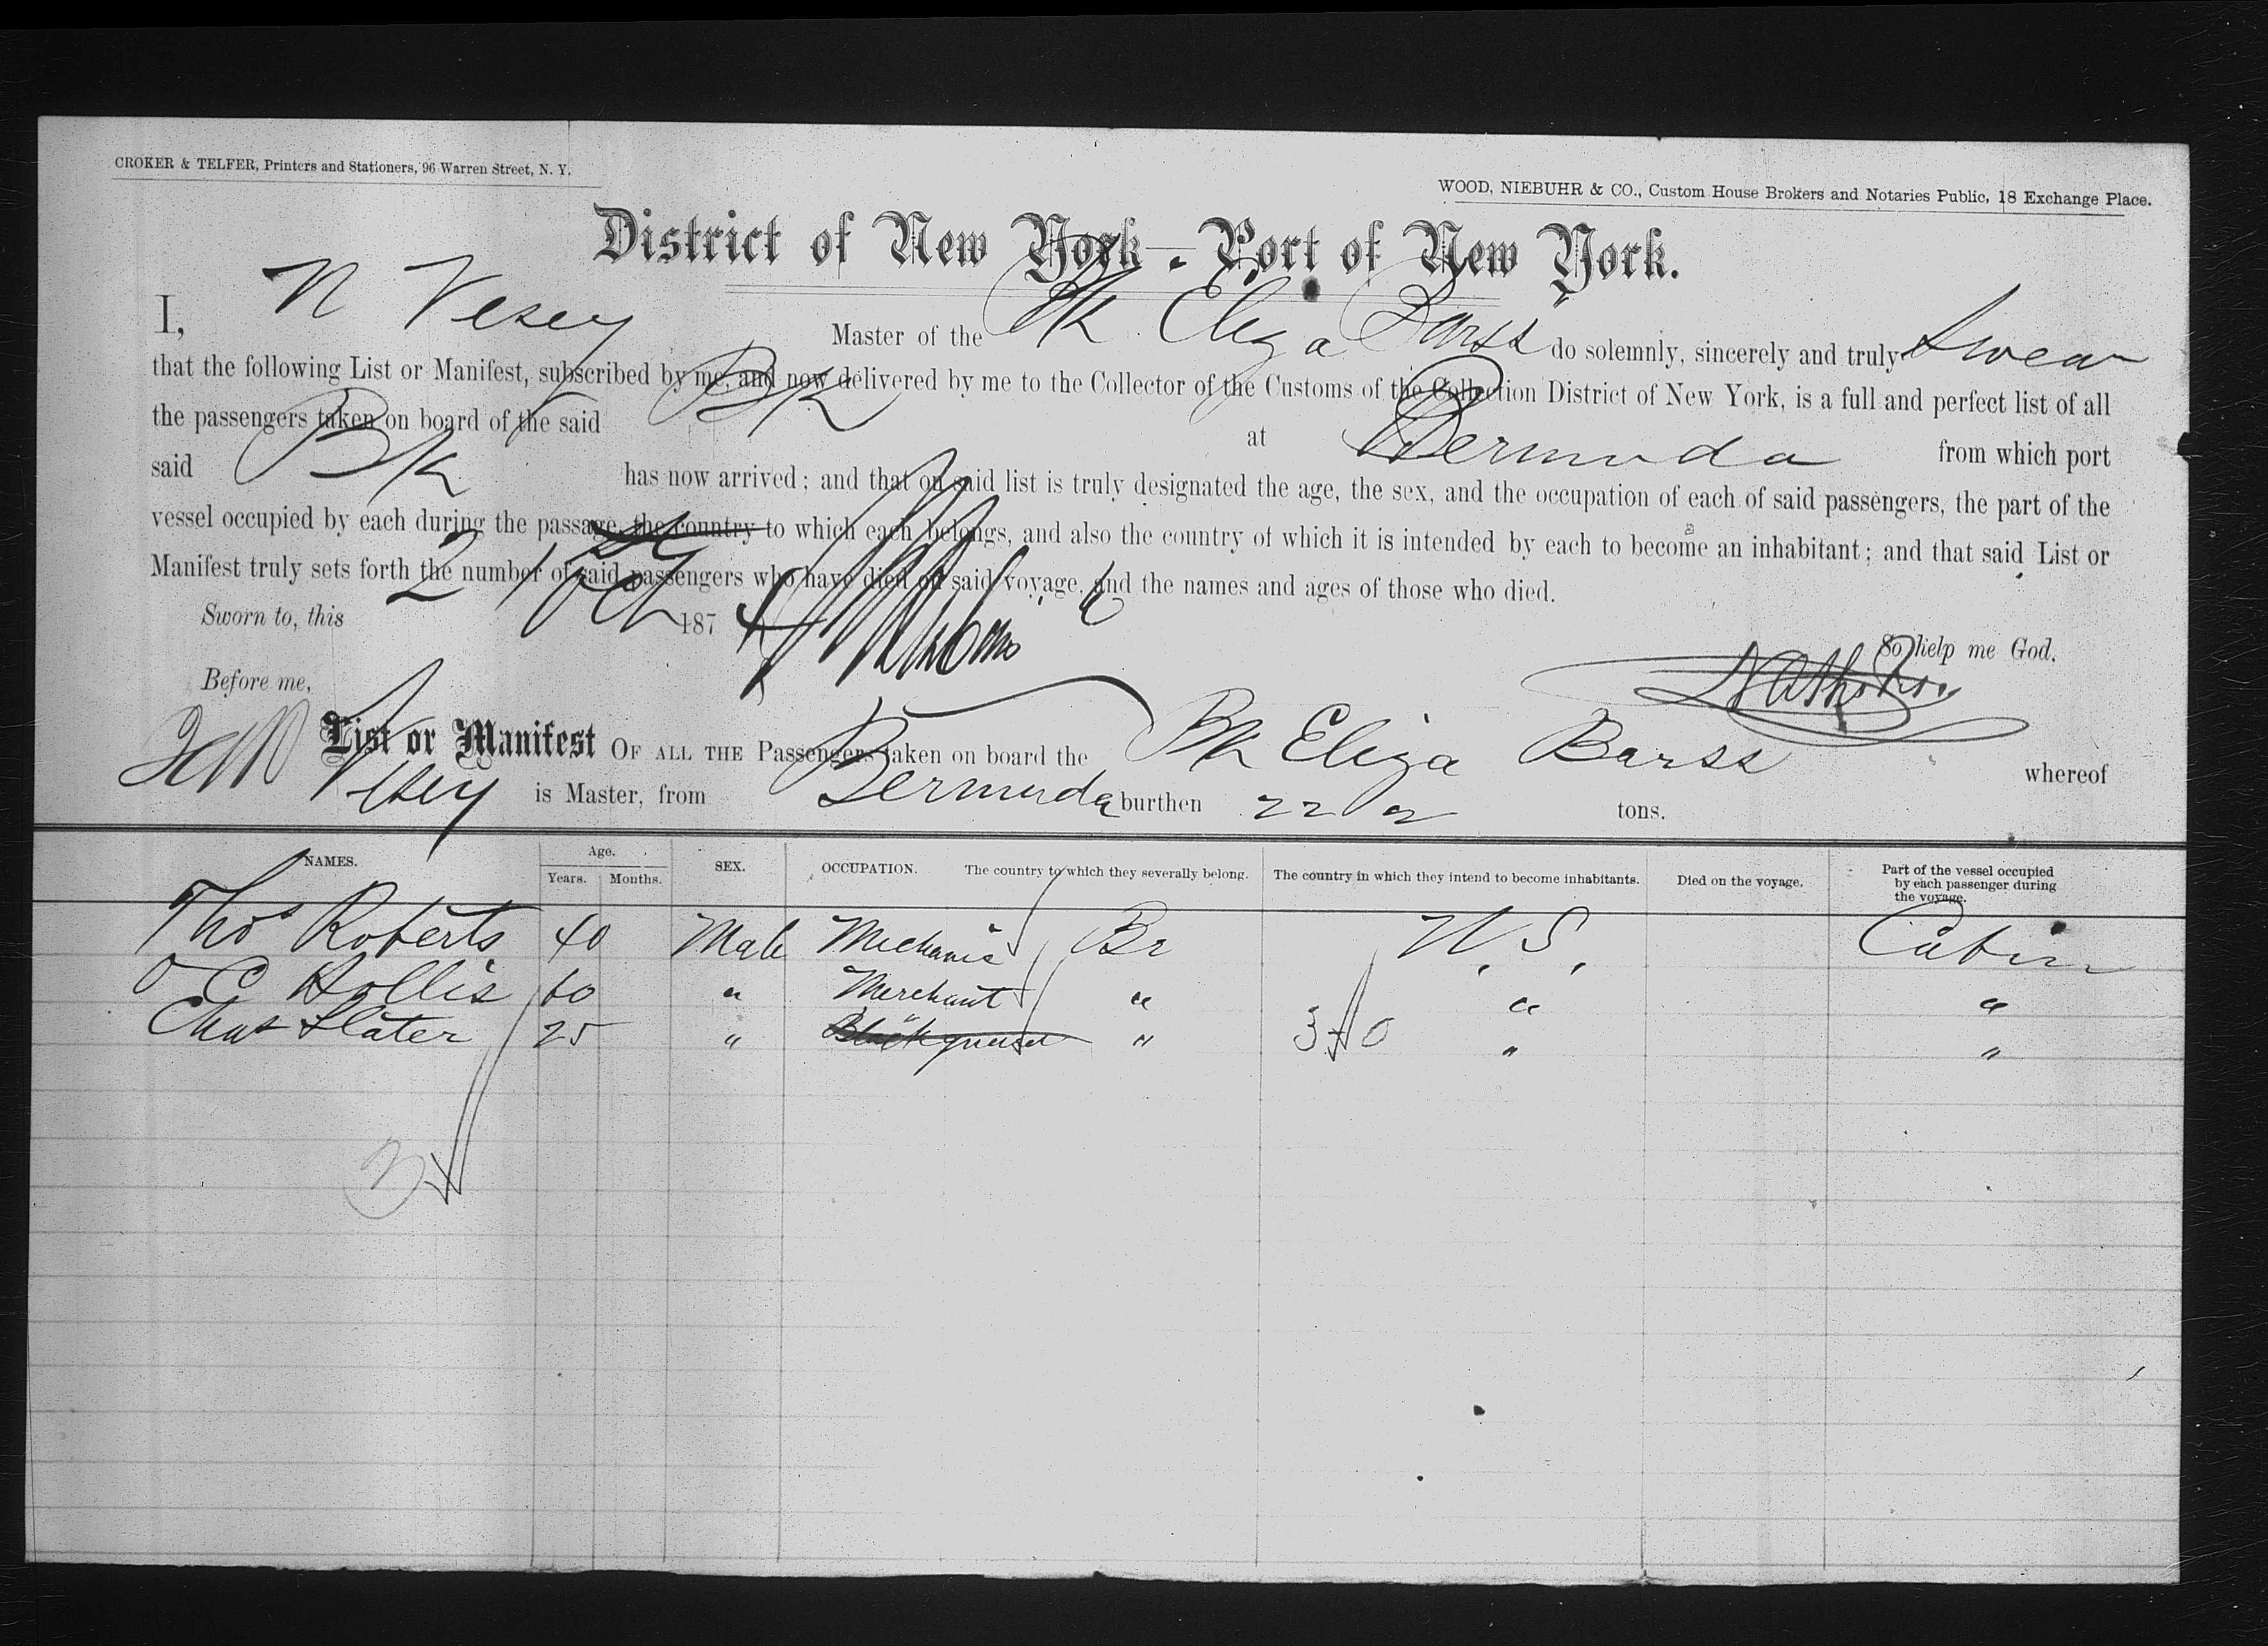 CROKER & TELFER, Printers and Stationers, 96 Warren Street, N. Y.
WOOD, NIEBUHR & CO., Custom House Brokers and Notaries Public, 18 Exchange Place.
District of New York - Port of New York.
I, N Vesey Master of the Bk Eliza Barss do solemnly, sincerely and truly Swear
that the following List or Manifest, subscribed by me, and now delivered by me to the Collector of the Customs of the Collection District of New York, is a full and perfect list of all
the passengers taken on board of the said Bk at Bermuda from which port
said Bk has now arrived; and that on said list is truly designated the age, the sex, and the occupation of each of said passengers, the part of the
vessel occupied by each during the passage, the country to which each belongs, and also the country of which it is intended by each to become an inhabitant; and that said List or
Manifest truly sets forth the number of said passengers who have died on said voyage, and the names and ages of those who died.
Sworn to, this 21 187
So help me God.
Before me,
List or Manifest OF ALL THE Passengers taken on board the Bk Eliza Barss whereof
Vesey is Master, from Bermuda burthen tons.
NAMES. Age. Years. Months. SEX. OCCUPATION. The country to which they severally belong. The country in which they intend to become inhabitants. Died on the voyage. Part of the vessel occupied by each passenger during the voyage.
Thos Roberts 40 Male Mechanic Br U.S. Cabin
C Hollis 60 " Merchant " " "
Chas Slater 25 " " " "